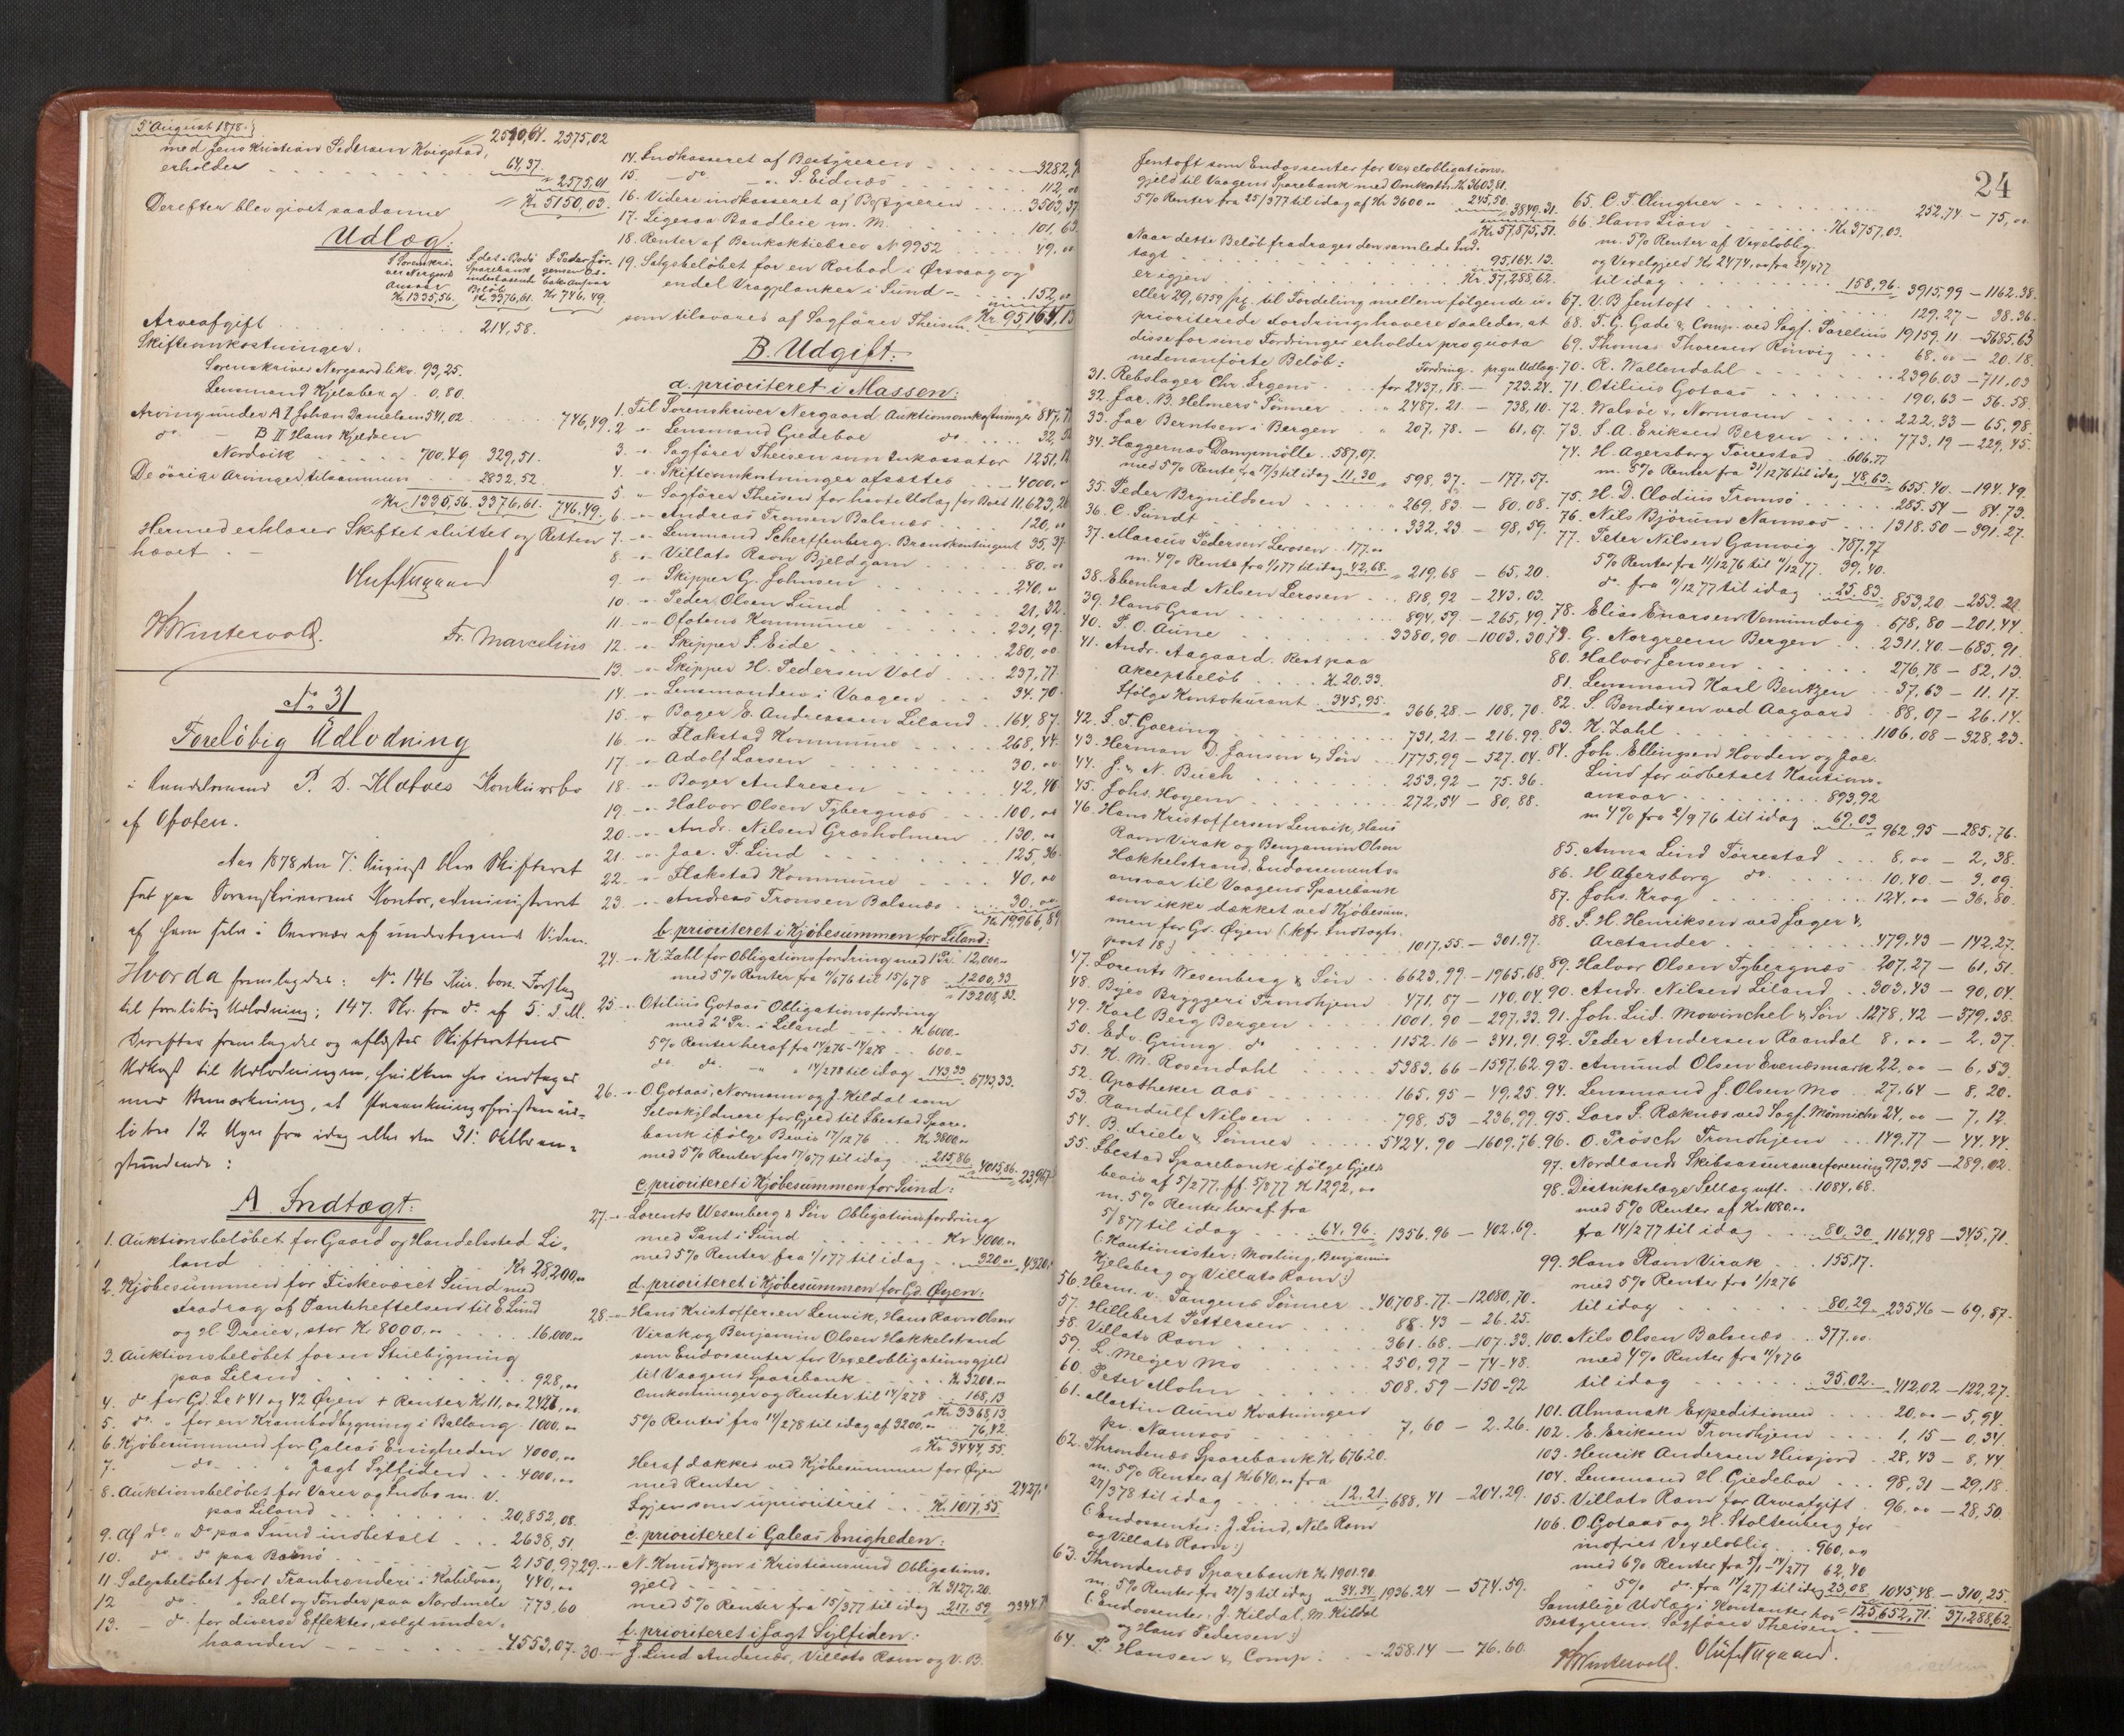 5' August 1878.
med Jens Kristian Pedersen Kvigstad, 2510,64. 2575,02
erholder 64,37.
" 2575,01
Kr 5150,03.
Derefter blev givet saadanne
Udlæg:
Arveafgift 214,58.
Skifteomkostninger:
Sorenskriver Nergaard likv. 93,25.
Lensmand Kjelsberg 0,80.
Arving under A I Johan Danielsen 541,02
746,49.
do - B II Hans Kjeldsen
Nordvik 700.49 329,51.
De övrige Arvinger tilsammen 2832,52
Kr 1335,56. 3376,61. 746,49.
Hermed erklæres Skiftet sluttet og Retten
hævet. -
Oluf Nergaard
W Wintervold. Fr. Marcelius
No 31
Foreløbig Udlodning
i Handelsmand P. D. Klæboes Konkursbo
af Ofoten.
Aar 1878 den 7. August blev Skifteret
sat paa Sorenskriverens Kontor, administreret
af ham selv i Overvær af undertegnede Vidner.
Hvorda fremlagdes: No. 146
til foreløbig Udlodning; 147. Skr. fra do af 5. d. M.
Derefter fremlagdes og oplæstes Skifterettens
Udkast til Udlodningen, hvilken her indtages
med Bemærkning, at Paaankningsfristen ud-
löber 12 Uger fra idag eller den 31. Oktbr. an-
stundende:
A. Indtægt:
1. Auktionsbeløbet for Gaard og Handelssted Li-
land Kr 28,200,00
2. Kjöbesummen for Fiskeværet Sund med
Fradrag af Panteheftelsen til E. Lind
og H. Dreier, stor Kr 8000,00 16,000,00
3. Auktionsbeløbet for en Stuebygning
paa Liland 928,00
4. do for Gd. Lo No 41 og 42 Øyen + Renter Kr 11,00. 2427,00
5. do " for en Krambodbygning i Ballang. 1000,00
6. Kjøbesummen for Galeas Enigheden 4000,00
7. - do - " Jagt Sylfiden 4000,00
8. Auktionsbeløbet for Varer og Indbo m. v.
paa Liland 20,852,08.
9. Af do " Do paa Sund indbetalt 2638,51.
10. do " do paa Barnö 2150,97
11. Salgsbeløbet for 1 Tranbrænderi i Kabelvaag 440,00
12 do " Salt og Tønder paa Nordmele 773,60
13. - do for diverse Effekter, solgt under-
haanden 4553,07.
14. Indkasseret af Bestyreren 3282,
15. - do - " S. Eidnæs 112,00
16. Videre indkasseret af Bestyreren 3503,37
17. Ligesaa Baadleie m. M. 101,63
18. Renter af Bankaktiebrev No 9952 49,00
19. Salgsbeløbet for en Rorbod i Ørsvaag og
endel Vragplanker i Sund 152,00
som tilsvares af Sagfører Theisen. Kr. 95,164,13
B. Udgift:
a. prioriteret i Massen:
1. Til Sorenskriver Nergaard Auktionsomkostninger 847,7
2 " Lensmand Giedeboe do 32,5
3. " Sagfører Theisen som Inkassator 1251,1
4. " Skifteomkostninger afsættes 4000,00
5. " Sagfører Theisen for havte Udlæg for Boet 11,623,2
6. " Andreas Tronsen Balsnæs 120,00
7. " Lensmand Scherffenberg. Brandkontingent 35,37.
8 " Villats Ravn Bjeldgam 80,00
9. " Skipper G. Johnsen 240,00
10. " Peder Olsen Lund 21,32.
11. " Ofotens Kommune 231,97.
12. " Skipper S. Eide 280,00
13. " Skipper H. Pedersen Vold 237,77.
14. " Lensmanden i Vaagen 34.70.
15. " Bager E. Andreassen Liland 164,87.
16. " Flakstad Kommune 268,44.
17. " Adolf Larsen 30,00
18. " Bager Andresen 42,40
19. " Halvor Olsen Tybergnæs 100,00
20. " Andr. Nilsen Græsholmen 130,00
21. " Jac. P. Lind 125,36
22. " Flakstad Kommune 40,00
23. " Andreas Tronsen Balsnæs 30,00
Kr 19966,89
b. prioriteret i Kjöbesummen for Liland:
24. " K. Zahl for Obligationsfordring med 1 Pr. 12,000,00
med 5% Renter fra 11/676 til 15/678 1200,33
" 13208,33.
25. " Otilius Gotaas Obligationsfordring
med 2 Pr. i Liland Kr. 6000,00
5% Renter heraf fra 14/276 - 14/278 600.00
do do " " 14/278 til idag 143,33 6743,33.
26. " O. Gotaas, Normann og J. Kildal som
Selvskyldnere for Gjeld til Ibestad Spare-
bank ifölge Bevis 17/12 76 Kr. 3800,00
med 5% Renter fra 17/677 til idag 215,86 4015,86. 23,967
c. prioriteret i Kjöbesummen for Sund:
27. " Lorents Wesenberg & Søn Obligationsfordring
med Pant i Sund Kr 4000,00
med 5% Renter fra 1/177 til idag 320,00 4320,
d. prioriteret i Kjöbesummen for Gd. Øyen:
28. " Hans Kristoffersen Lenvik, Hans Ravn Olsen
Virak og Benjamin Olsen Hækkelstrand
som Endossenter for Vexelobligationsgjeld
til Vaagens Sparebank Kr 3200,00
Omkostninger og Renter til 14/278 168,13
Kr 3368,13
5% Renter fra 14/278 til idag af 3200,00 76,42
Kr 3444,55.
Heraf dækkes ved Kjöbesummen for Øyen
med Renter 2427,
Igjen som uprioriteret Kr. 1017,55.
e. prioriteret i Galeas Enigheden:
29. " N. Knudtzon i Kristiansund Obligations-
gjeld Kr 3127.20.
med 5% Renter fra 15/377 til idag 217.59 3344,7
f. prioriteret i Jagt Sylfiden:
30. " J. Lind Andenæs, Villats Ravn og V. B.
24
Jentoft som Endossenter for Vexelobligations-
gjeld til Vaagens Sparebank med Omkostn. Kr 3603,81.
5% Renter fra 25/377 til idag af Kr 3600,00 245,50. 3849.31.
Kr 57,875,51.
Naar dette Beløb fradrages den samlede Ind-
tægt 95,164.13.
er igjen Kr. 37,288,62.
eller 29,6759 p.C. til Fordeling mellem følgende u-
prioriterede Fordringshavere saaledes, at
disse for sine Fordringer erholder pro quota
nedenanførte Beløb: Fordring. pr. qu. Udlæg.
31. Rebslager Chr. Irgens for 2437.18 - 723.24.
32. Jac. B. Helmers Sønner " 2487.21 - 738,10.
33. Jac Berntsen i Bergen " 207.78. - 61,67.
34. Hæggernæs Dampmølle 587,07.
med 5% Rente fra 17/3 til idag 11,30 " 598,37. - 177,57.
35. Peder Brynildsen " 269,83 - 80,08.
36. C. Sundt 332,23 - 98,59.
37. Marcus Pedersen Lerosen 177.00
m. 4% Rente fra 1/177 til idag 42,68. " 219,68 - 65,20.
38. Ebenhard Nilsen Lerosen 818,92 - 243,03.
39. Hans Gran 894,59 - 265,49.
40. P. O. Aune 3380,90 - 1003,30.
41. Andr. Aagaard. Rest paa
Akceptbeløb Kr. 20.33.
Ifölge Kontokurant 345,95. " 366,28 - 108,70.
42. I. T. Goering 731,21 - 216.99.
43. Herman D. Janson & Søn 1775,99 - 527,04.
44. J. & N. Buch 253,92 - 75.36.
45. Johs. Hoyem 272,54 - 80,88.
46. Hans Kristoffersen Lenvik, Hans
Ravn Virak og Benjamin Olsen
Hækkelstrand, Endossements-
ansvar til Vaagens Sparebank
som ikke dækket ved Kjöbesum-
men for Gd. Øyen (kfr. Indtægts-
post 18.) 1017,55. - 301.97.
47. Lorents Wesenberg & Søn 6623,99. - 1965,68.
48. Byes Bryggeri Trondhjem 471,87 - 140,04.
49. Karl Berg Bergen 1001,90 - 297,33.
50. Edv. Gring do 1152.16 - 341,91.
51. K. M. Rosendahl 5383.66 - 1597.62.
52. Apotheker Aas 165,95 - 49,25.
53. Randulf Nilsen 798,53 - 236,99
54. B. Friele & Sønner 5424.90 - 1609,76.
55. Ibestad Sparebank ifölge Gjelds-
bevis af 5/277. ff. 5/877 Kr 1292,00
m. 5% Renter heraf fra
5/877 til idag 64,96. 1356.96 - 402.69.
(Kautionister: Mosling, Benjamin
Kjelsberg og Villats Ravn:)
56. Herm. v. Tangens Sønner 40,708.77 - 12080,70.
57. Hillebert Pettersen 88.43 - 26.25.
58. Villats Ravn 361.68. - 107.33.
59. L. Meyer Mo 250,97 - 74.48.
60. Peter Mohn 508,59 - 150.92
61. Martin Aune Kvatningen
pr. Namsos 7,60 - 2.26.
62. Throndenæs Sparebank Kr 676.20.
m. 5% Renter af Kr 640,00 fra
27/378 til idag 12,21 688,41 - 204.29.
(Endossenter: J. Lind, Nils Ravn
og Villats Ravn:)
63. Throndenæs Sparebank Kr 1901.90.
m. 5% Renter fra 27/3 til idag 34.34. 1936.24 - 574.59.
(Endossenter: J. Kildal, M. Kildal
og Hans Pedersen:)
64. P. Hansen & Comp: 258.14 - 76.60.
65. C. F. Clingner 252,74 - 75,00
66. Hans Lian Kr 3757,03.
m. 5% Renter af Vexeloblig.
og Vexelgjeld Kr 2474,00 fra 24/477
til idag 158,96. 3915,99 - 1162.38.
67. V. B. Jentoft 129.27 - 38.36.
68. F. G. Gade & Comp. ved Sagf. Parelius 19159.11 - 5685,63
69. Thomas Thoresen Rönvig 68.00 - 20.18.
70. R. Wallendahl 2396.03 - 711,03
71. Otilius Gotaas 190,63 - 56.58.
72. Walsøe & Normann 222,33 - 65,98.
73. S. A. Eriksen Bergen 773.19 - 229,45.
74. H. Agersborg Törrestad 606,77
m. 5% Renter fra 31/1276 til idag 48,63. 655.40. - 194.49.
75. H. D. Clodius Tromsö 285.54 - 84.73.
76. Nils Björum Namsos 1318.50 - 391.27.
77. Peter Nilsen Gamvig 787.97
5% Renter fra 11/1276 til 11/1277. 39,40.
do fra 11/1277 til idag 25.83. 853,20 - 253.20
78. Elias Enarsen Vemundvig 678,80 - 201,44.
79. G. Norgreen Bergen 2311.40. - 685,91.
80. Halvor Jensen 276,78 - 82,13.
81. Lensmand Karl Bentzen 37,63 - 11.17.
82. S. Bendixen ved Aagaard 88,07 - 26.14.
83. K. Zahl 1106.08 - 328,23.
84. Joh. Ellingsen Hovden og Jac.
Lind for udbetalt Kautions-
ansvar 893,92
m 4% fra 2/976 til idag 69,03 962.95 - 285,76.
85. Anna Lind Törrestad 8,00 - 2,38.
86. H Agersborg do 10.40. - 3.09.
87. Johs. Krog 124,00 - 36,80.
88. P. H. Henriksen ved Jæger &
Arctander 479,43 - 142,27.
89. Halvor Olsen Tybergnæs 207,27 - 61,51.
90. Andr. Nilsen Liland 303,43 - 90,04.
91. Joh. Lud. Mowinchel & Søn 1278,42 - 379,38.
92. Peder Andersen Raandal 8,00 - 2,37.
93. Amund Olsen Evenæsmark 22,00 - 6,53.
94. Lensmand J. Olsen Mo 27,64 - 8,20.
95. Lars P. Ræknæs ved Sagf. Mönnichs 24,00 - 7,12.
96. O. Prösch Trondhjem 149,77 - 44.44.
97. Nordlands Skibsassuranceforening 973,95 - 289,02.
98. Distriktslæge Selläg 1084,68.
med 5% Renter af Kr 1080,00
fra 14/277 til idag 80,30 1164,98 - 345,71.
99. Hans Ravn Virak 155,17.
med 5% Renter fra 1/1276
til idag 80,29 235,46 - 69,87.
100. Nils Olsen Balsnæs 377.00
med 4% Renter fra 11/476
til idag 35,02. 412,02 - 122,27.
101. Almanak Expeditionen 20,00 - 5,94.
102. E. Eriksen Trondhjem 1,15 - 0,34.
103. Henrik Andersen Husjord 28,43 - 8,44
104. Lensmand H. Giedeboe 98,31 - 29,18.
105. Villats Ravn for Arveafgift 96,00 - 28,50.
106. O. Gotaas og H. Stoltenberg for
indfriet Vexeloblig. 960,00
med 6% Renter fra 5/1 - 14/277 62,40
" 5% do fra 14/277 til idag 23,08. 1045.48. - 310,25.
Samtlige Udlæg i Kontanter hos 125,652,71. 37,288,62.
Bestyreren, Sagfører Theisen.
W Wintervold. Oluf Nergaard.